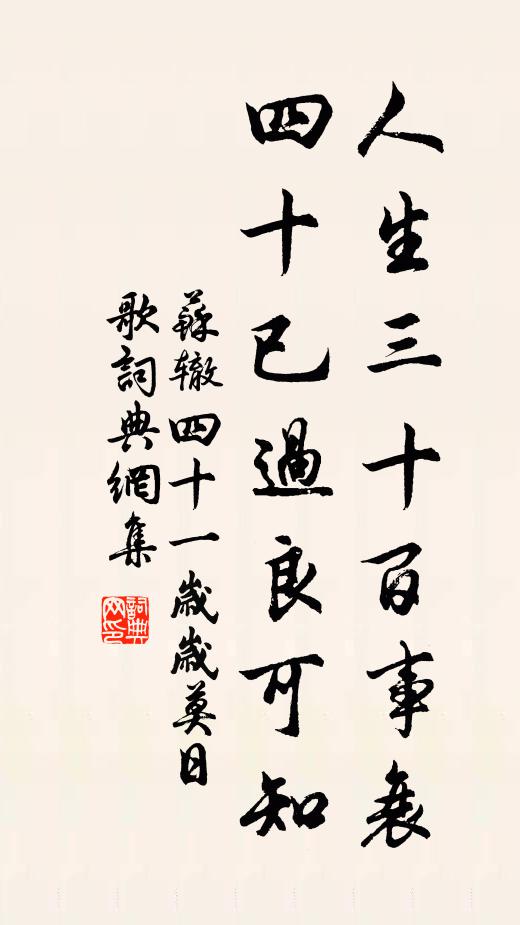 人生三十百事衰
四十已過良可知
蘇辙四十一歲歲莫日
歌詞典網集
詞典網印